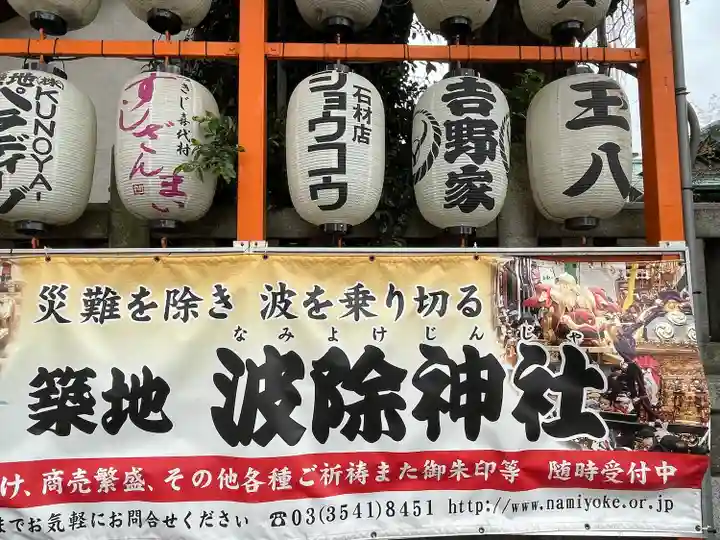 築地
㈱KUNOYA-
パラディーゾ
きじ喜代村
すしざんまい
石材店
ショウコウ
吉野家
王八
災難を除き 波を乗り切る
なみよけじんじゃ
築地 波除神社
け、商売繁盛、その他各種ご祈祷また御朱印等 随時受付中
までお気軽にお問合せください ☎03(3541)8451 http://www.namiyoke.or.jp